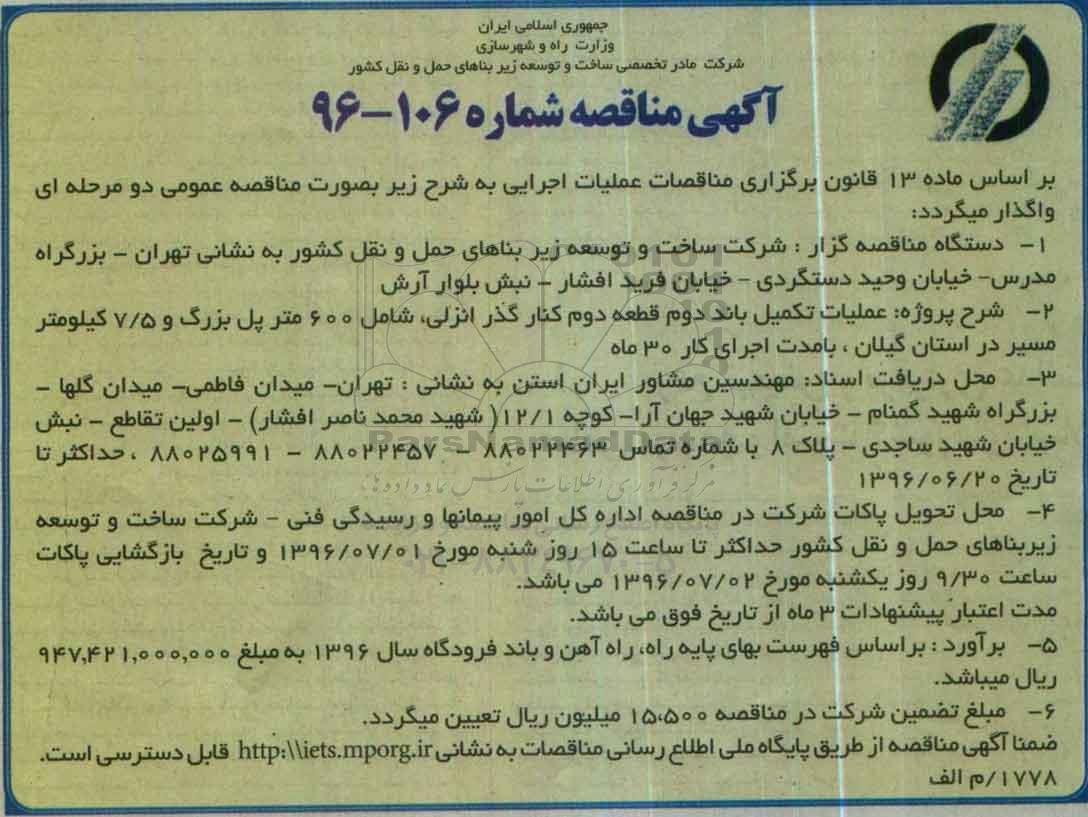 جمهوری اسلامی ایران
وزارت راه و شهرسازی
شرکت مادر تخصصی ساخت و توسعه زیر بناهای حمل و نقل کشور
آگهی مناقصه شماره ۱۰۶-۹۶
بر اساس ماده ۱۳ قانون برگزاری مناقصات عملیات اجرایی به شرح زیر بصورت مناقصه عمومی دو مرحله ای
واگذار میگردد:
۱- دستگاه مناقصه گزار : شرکت ساخت و توسعه زیر بناهای حمل و نقل کشور به نشانی تهران - بزرگراه
مدرس- خیابان وحید دستگردی - خیابان فرید افشار - نبش بلوار آرش
۲- شرح پروژه: عملیات تکمیل باند دوم قطعه دوم کنار گذر انزلی، شامل ۶۰۰ متر پل بزرگ و ۷/۵ کیلومتر
مسیر در استان گیلان ، بامدت اجرای کار ۳۰ ماه
۳- محل دریافت اسناد: مهندسین مشاور ایران استن به نشانی : تهران- میدان فاطمی- میدان گلها -
بزرگراه شهید گمنام - خیابان شهید جهان آرا- کوچه ۱۲/۱( شهید محمد ناصر افشار) - اولین تقاطع - نبش
خیابان شهید ساجدی - پلاک ۸ با شماره تماس ۸۸۰۲۲۴۶۳ - ۸۸۰۲۲۴۵۷ - ۸۸۰۲۵۹۹۱ ، حداکثر تا
تاریخ ۱۳۹۶/۰۶/۲۰
۴- محل تحویل پاکات شرکت در مناقصه اداره کل امور پیمانها و رسیدگی فنی - شرکت ساخت و توسعه
زیربناهای حمل و نقل کشور حداکثر تا ساعت ۱۵ روز شنبه مورخ ۱۳۹۶/۰۷/۰۱ و تاریخ بازگشایی پاکات
ساعت ۹/۳۰ روز یکشنبه مورخ ۱۳۹۶/۰۷/۰۲ می باشد.
مدت اعتبار پیشنهادات ۳ ماه از تاریخ فوق می باشد.
۵- برآورد : براساس فهرست بهای پایه راه، راه آهن و باند فرودگاه سال ۱۳۹۶ به مبلغ ۹۴۷,۴۲۱,۰۰۰,۰۰۰
ریال میباشد.
۶- مبلغ تضمین شرکت در مناقصه ۱۵،۵۰۰ میلیون ریال تعیین میگردد.
ضمنا آگهی مناقصه از طریق پایگاه ملی اطلاع رسانی مناقصات به نشانی http:\\iets.mporg.ir قابل دسترسی است.
۱۷۷۸/م الف
ParsNamadData
مرکز فرآوری اطلاعات پارس نماد داده ها